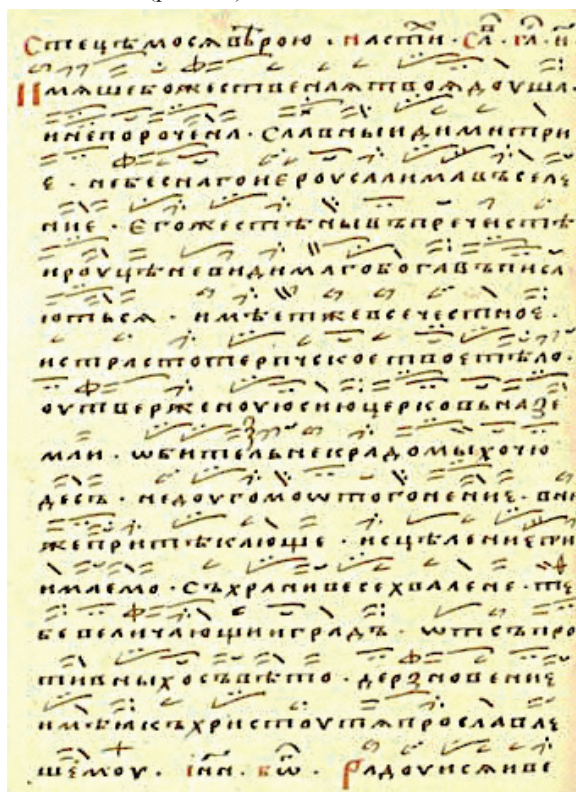 стецѣмосѧвѣрою · настїи · сл҃в · гл҃ · и҃
Имѧшебожественаꙗтвоꙗдоуша ·
инепорочена · славныидимитри
е · небеснагоиероусалимавъселе
ние · егожестѣнывъпречистѣ
ироуцѣневидимагобогавъписа
ютьсѧ · имѣетжевсечестное ·
истрастотерпическоетвоетѣло ·
оутверженоуюсиюцерковьназе
мли · ѡбительнекрадомыхочю
десъ · недоугомоѡтогонение · вни
жепритѣкающе · исцѣлениепри
имлемо · съхранивесехвалене · те
бевеличающииградъ · ѡтсъпро
тивныхосъвѣто · дерзновение
имѣѧкъхристоутѧпрославле
шемоу · і нн҃ · бѡ҃ · Радоуисѧиве